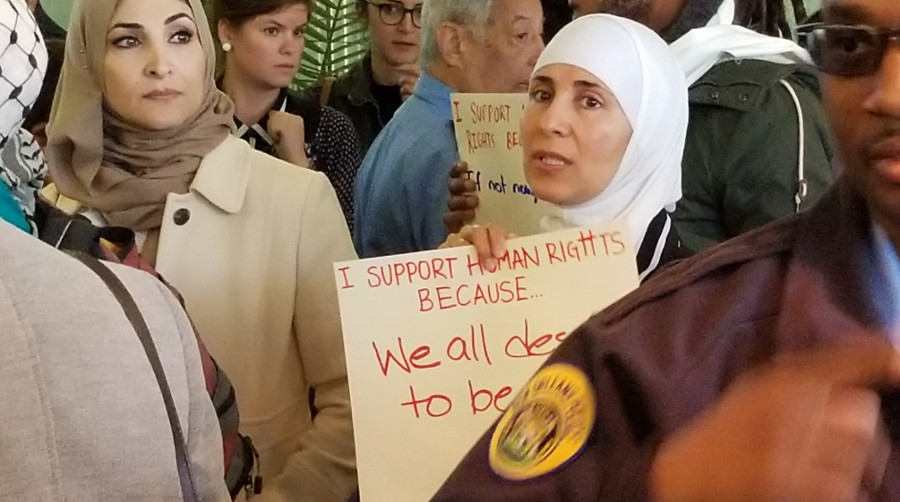 I SUPPORT
RIGHTS
If not
I SUPPORT HUMAN RIGHTS
BECAUSE...
We all
to be